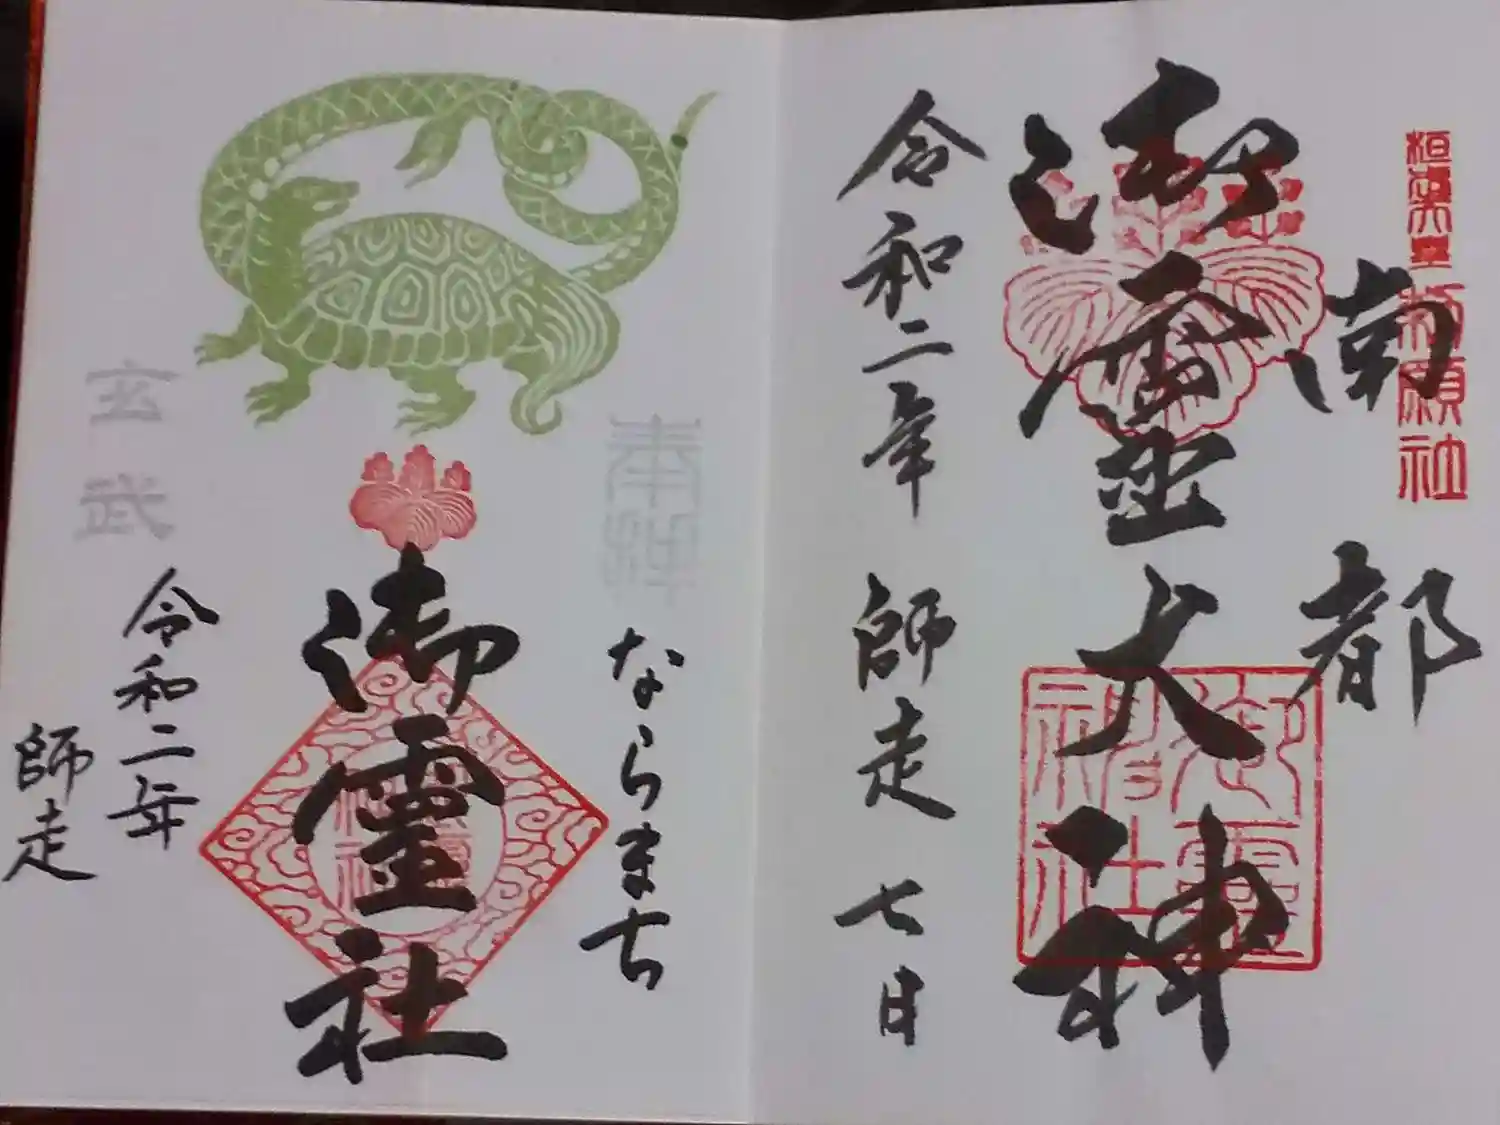 桓武天皇祈願社
南都
御霊大神
御霊神社
令和二年 師走 七日
奉拝
ならまち
御霊社
玄武
令和二年
師走